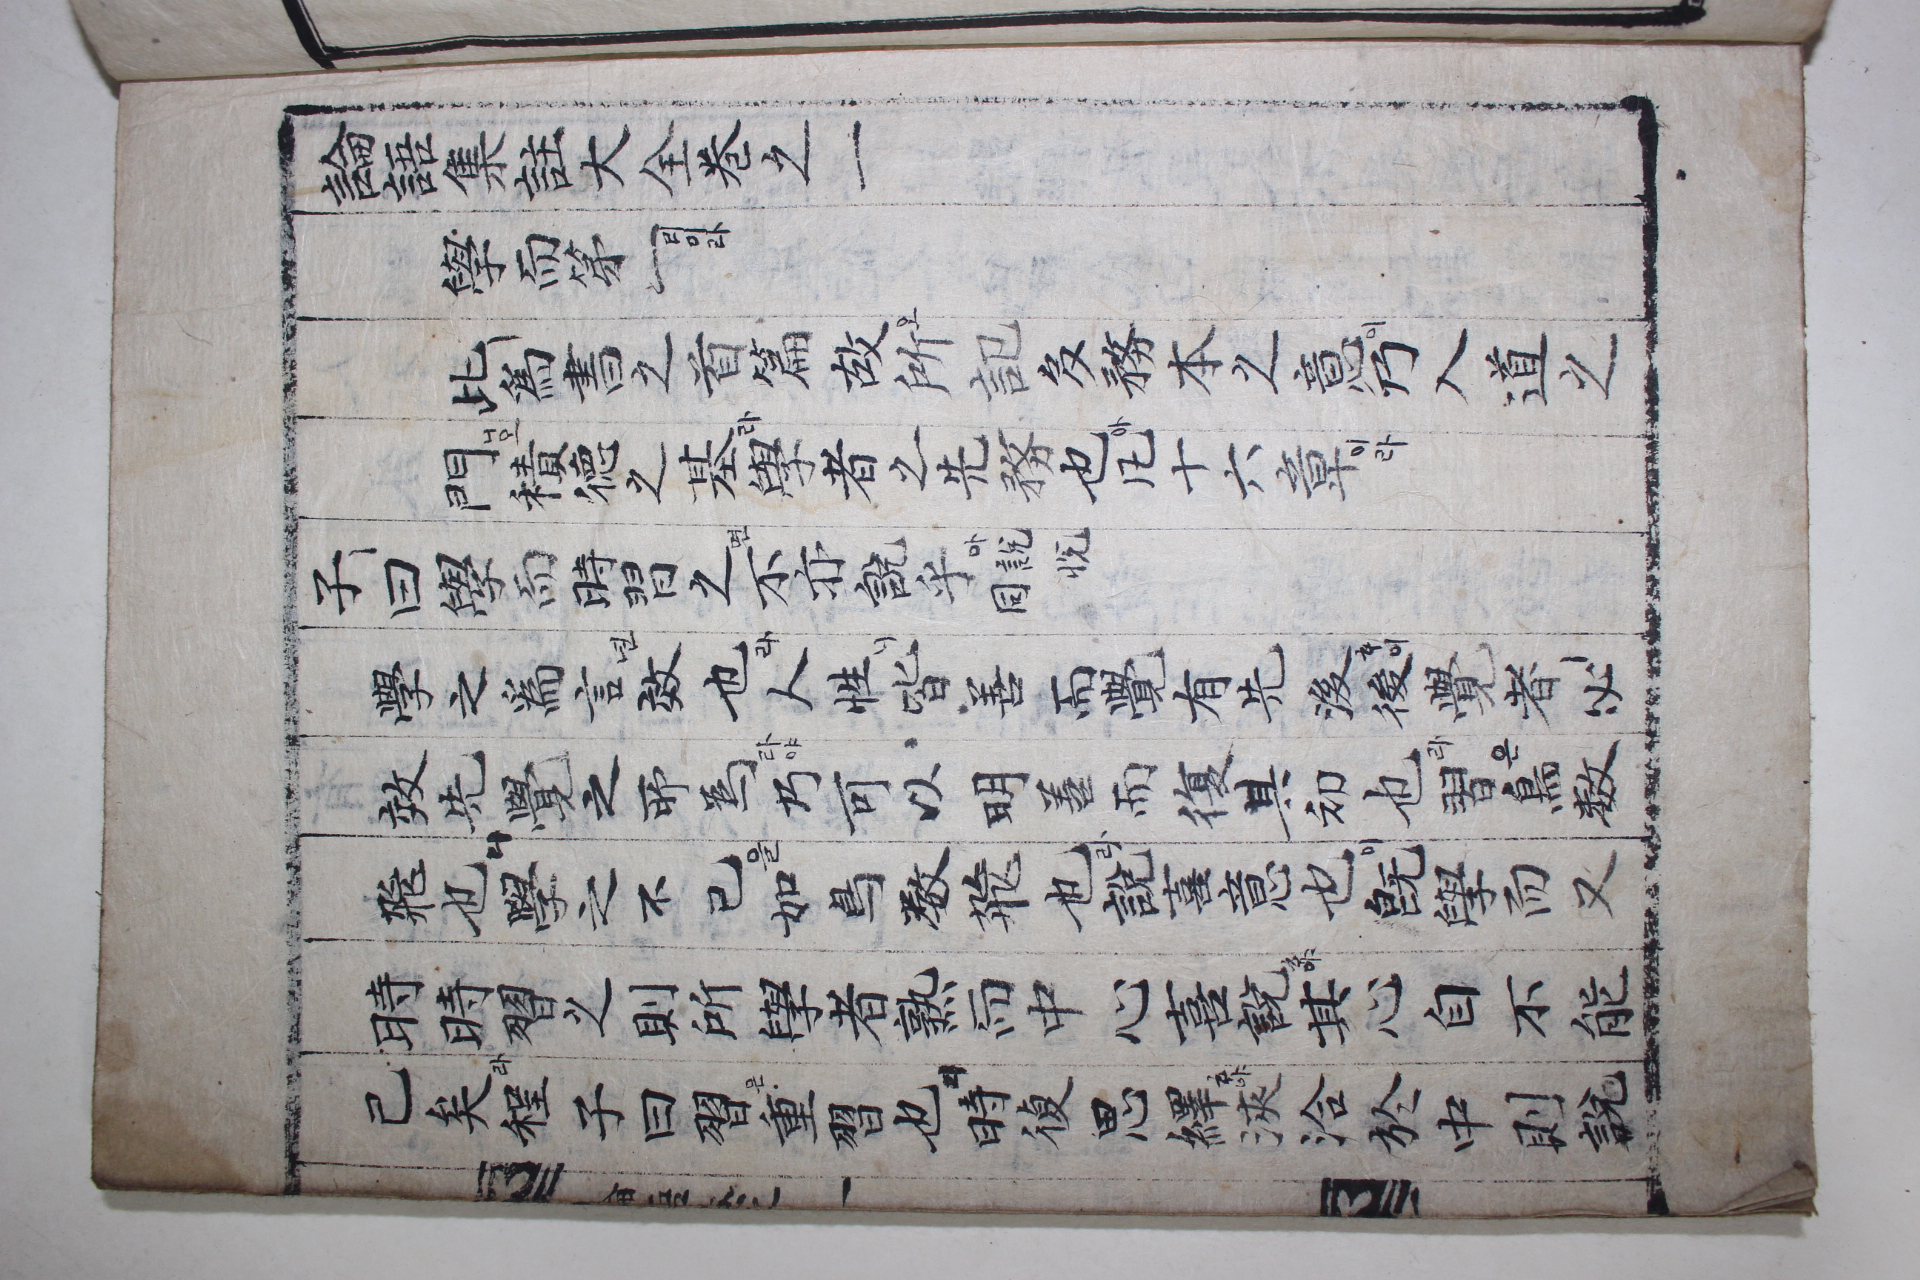 論語集註大全卷之一
學而第一이라
此爲書之首篇故로所記多務本之意이乃入道之
門이오積德之基라學者之先務也아凡十六章이라
子曰學而時習之면不亦說乎아說悅同
學之爲言은效也라人性皆善而覺有先後후이後覺者必
效先覺之所爲라야乃可以明善而復其初也라習은鳥數
飛也니學之不已을如鳥數飛也라說喜意也이既學而又
時時習之則所學者熟而中心喜說其心自不能
已矣라程子曰習은重習也時復思繹浹洽於中則說